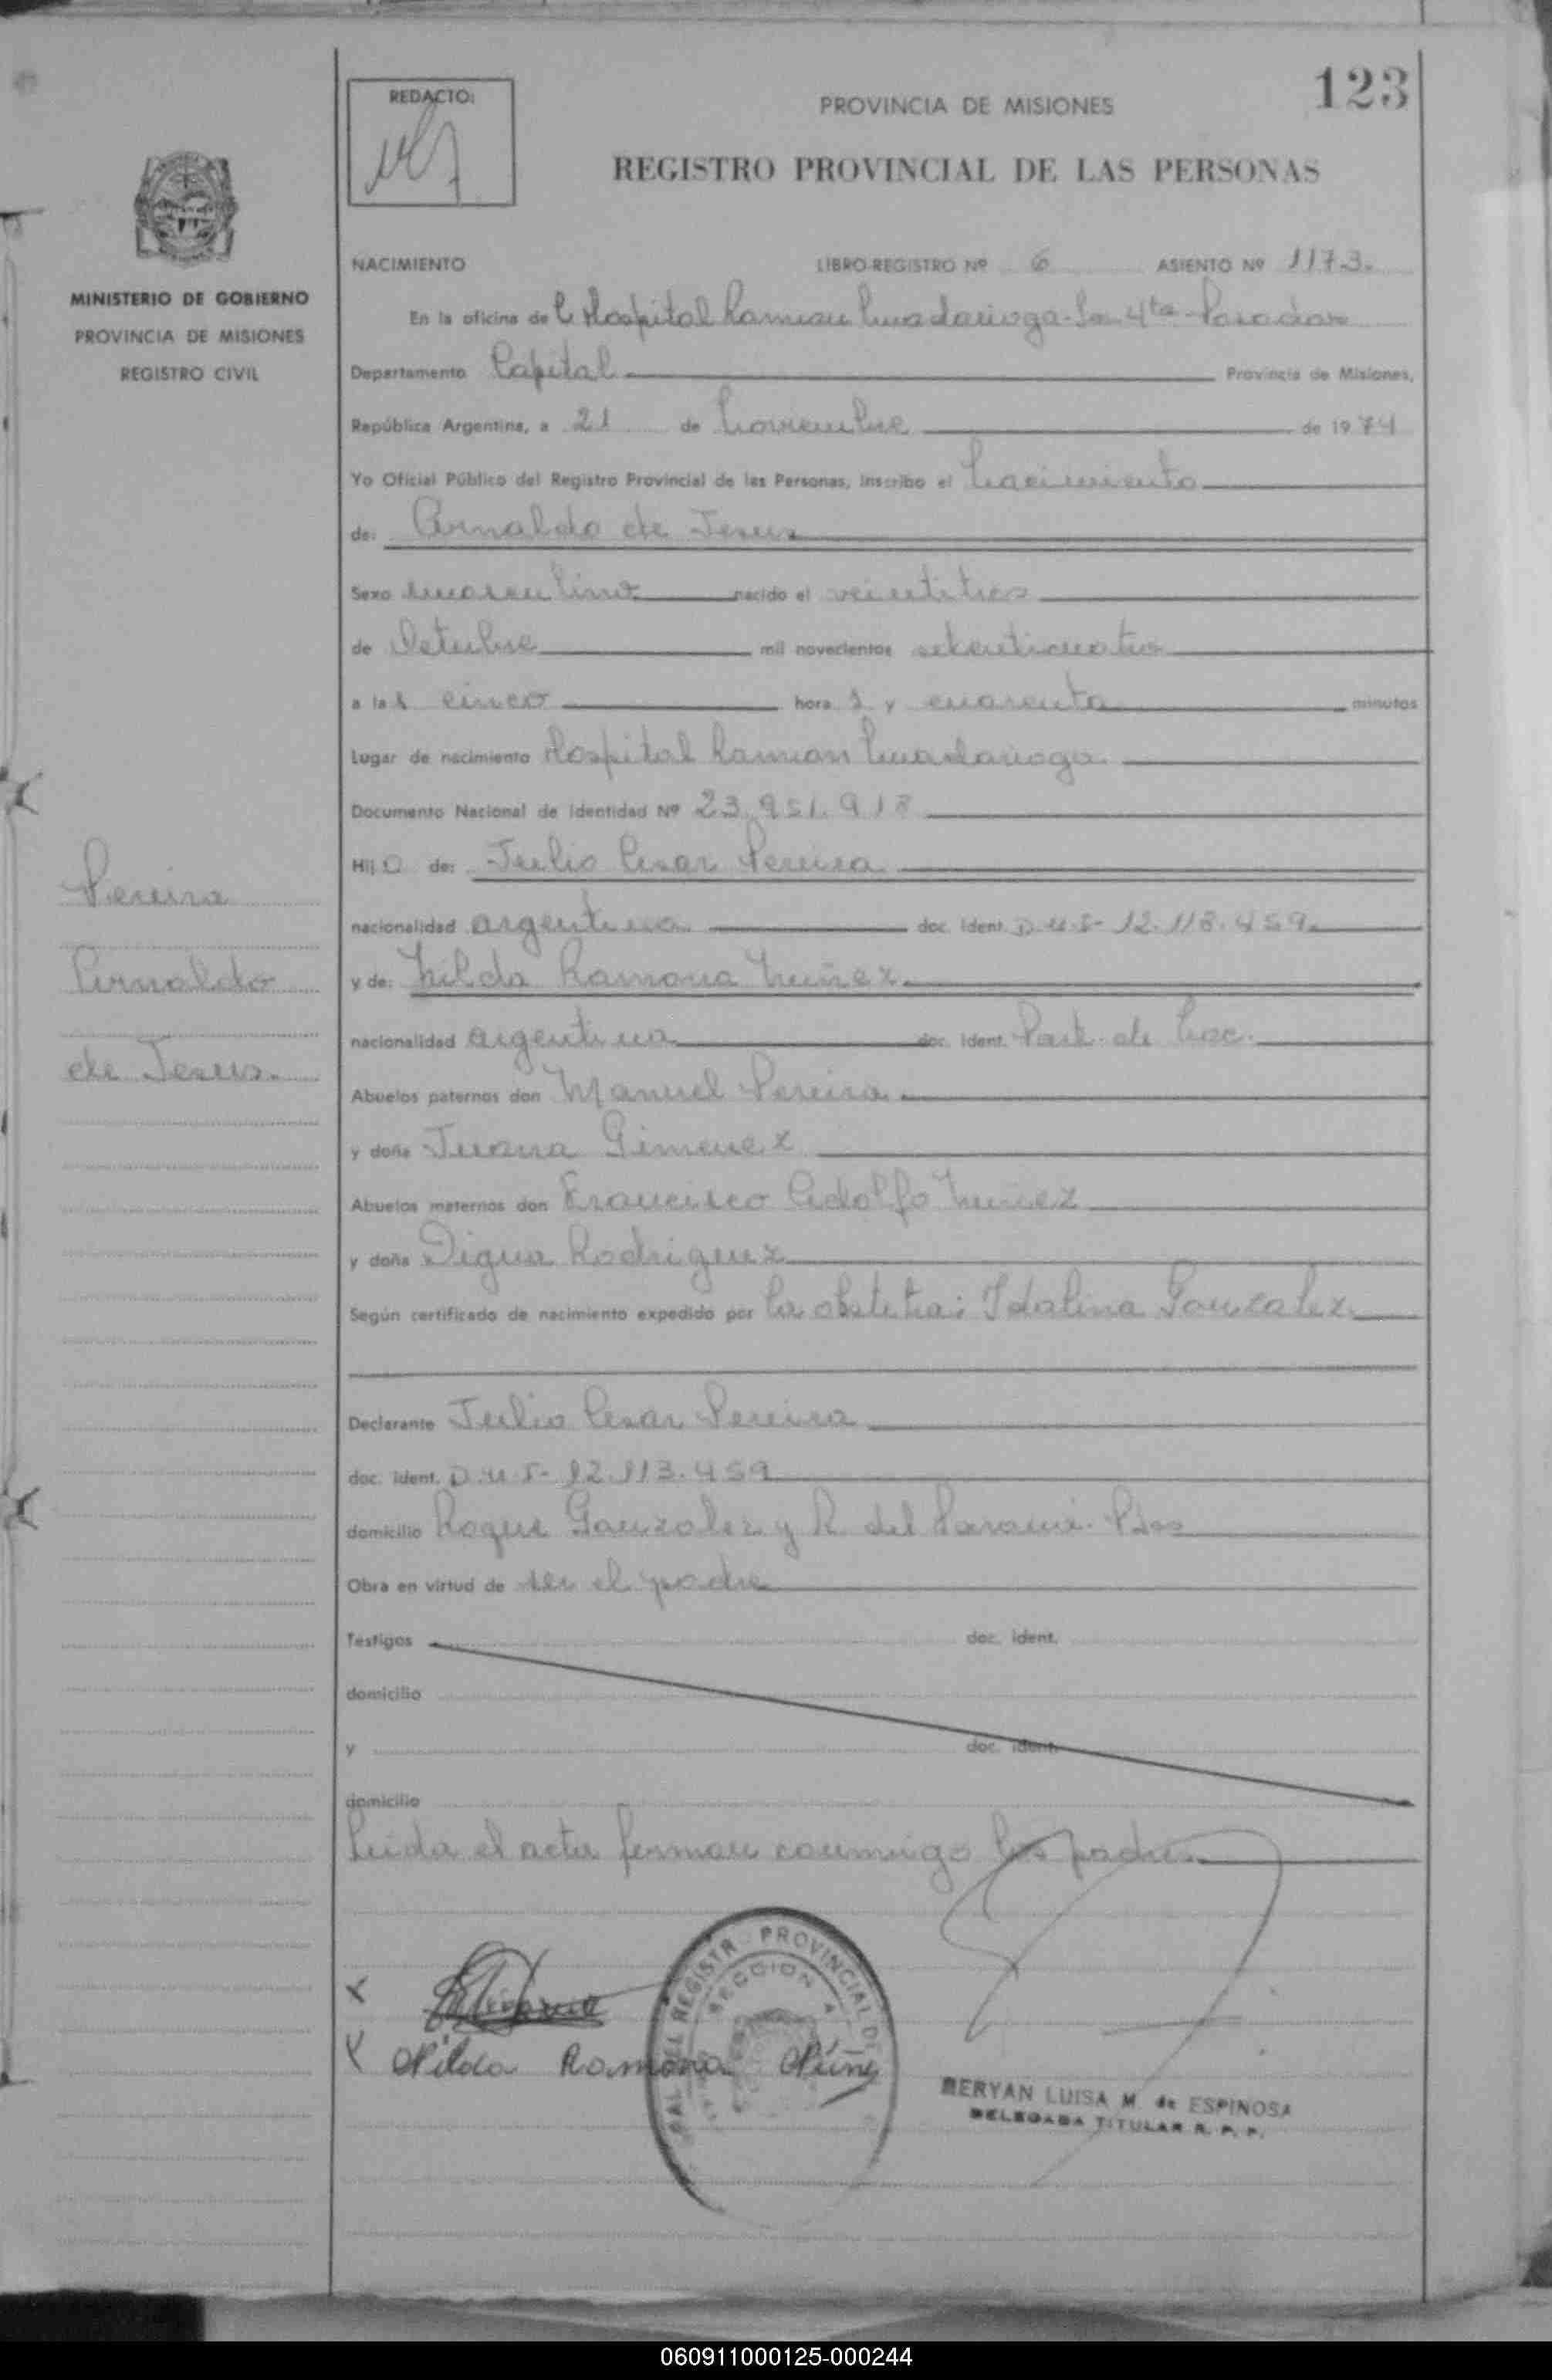 123
REDACTO:
PROVINCIA DE MISIONES
REGISTRO PROVINCIAL DE LAS PERSONAS
MINISTERIO DE GOBIERNO
PROVINCIA DE MISIONES
REGISTRO CIVIL
NACIMIENTO LIBRO-REGISTRO Nº 6 ASIENTO Nº 1173.
En la oficina de Hospital Ramon Madariaga - 4ta Posadas
Departamento Capital Provincia de Misiones,
República Argentina, a 21 de Noviembre de 1974
Yo Oficial Público del Registro Provincial de las Personas, inscribo el Nacimiento
de: Arnaldo de Jesus
Sexo masculino nacido el veintitres
de Octubre mil novecientos setenticuatro
a las cinco horas y cuarenta minutos
Lugar de nacimiento Hospital Ramon Madariaga
Documento Nacional de Identidad Nº 23.951.918
Hijo de: Julio Cesar Pereira
nacionalidad argentina doc. Ident. D.U.F- 12.118.459
y de: Nilda Ramona Nuñez
nacionalidad argentina doc. Ident. Part. de Nac.
Abuelos paternos don Manuel Pereira
y doña Juana Gimenez
Abuelos maternos don Francisco Adolfo Nuñez
y doña Digna Rodriguez
Según certificado de nacimiento expedido por la obstetra: Idalina Gonzalez
Declarante Julio Cesar Pereira
doc. ident. D.U.F- 12.113.459
domicilio Roque Gonzalez y R. del Paraná - Pdas
Obra en virtud de ser el padre
Testigos doc. ident.
domicilio
y doc. ident.
domicilio
Leida el acta firman conmigo los padres
Pereira
Arnaldo
de Jesus.
REGISTRO PROVINCIAL DE
SECCION 4
Nilda Ramona Núñez
MERYAN LUISA M. de ESPINOSA
DELEGADA TITULAR R. P. P.
060911000125-000244